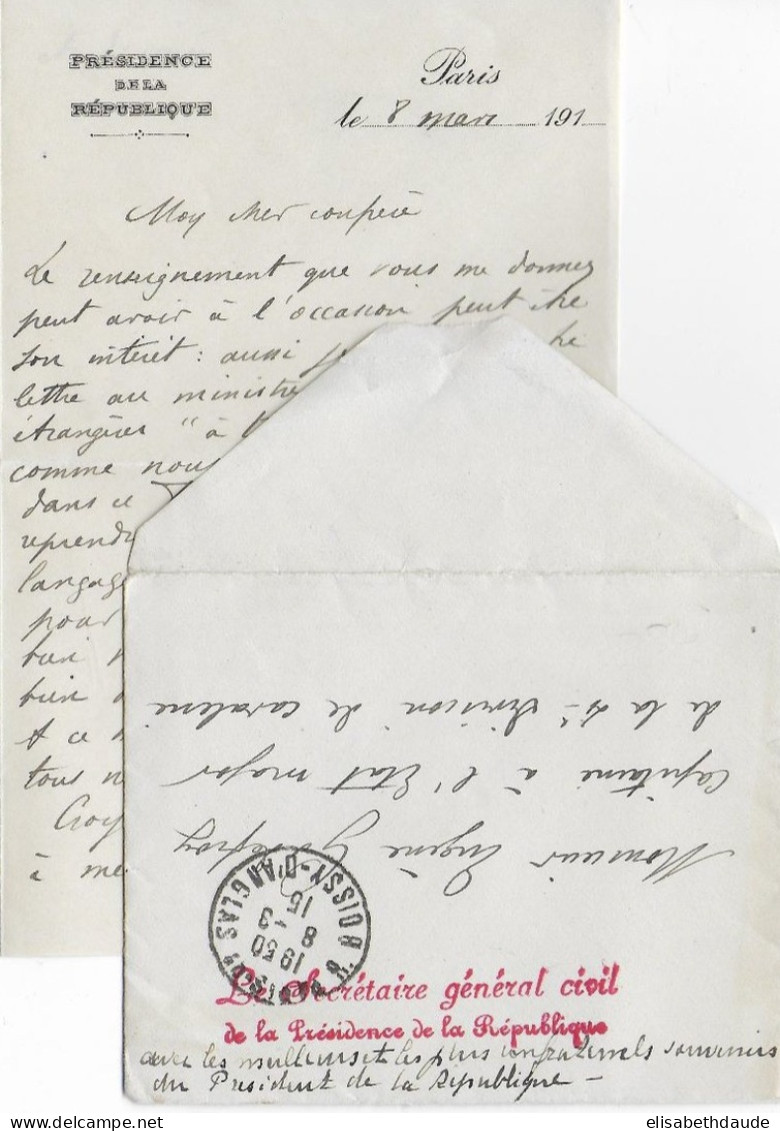 PRÉSIDENCE
DE LA
RÉPUBLIQUE
Paris
le 8 mars 191
Mon cher confrère
Le renseignement que vous me donnez
peut avoir à l'occasion peut être
son intérêt : aussi
lettre au ministre
étrangères " à
comme nous
dans ce
reprendre
langage
pour
bien
bien
A ce
tous
Croy
à me
Monsieur Eugène Godefroy
Capitaine à l'Etat major
de la 4e Division de cavalerie
PARIS 8 R. BOISSY-D'ANGLAS
1930
8 -3
15
Le Secrétaire général civil
de la Présidence de la République
avec les meilleurs et les plus confraternels souvenirs
du Président de la République -
elisabethdaude